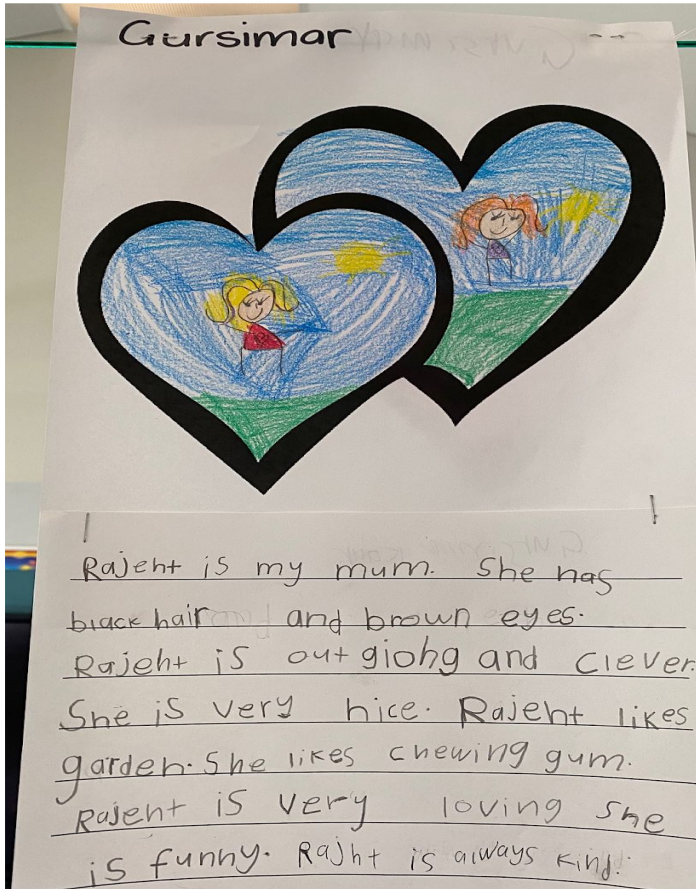 Gursimar
Rajeht is my mum. She has
black hair and brown eyes.
Rajeht is out giohg and clever.
She is very hice. Rajeht likes
garden. She likes chewing gum.
Rajeht is very loving she
is funny. Rajht is always kind.